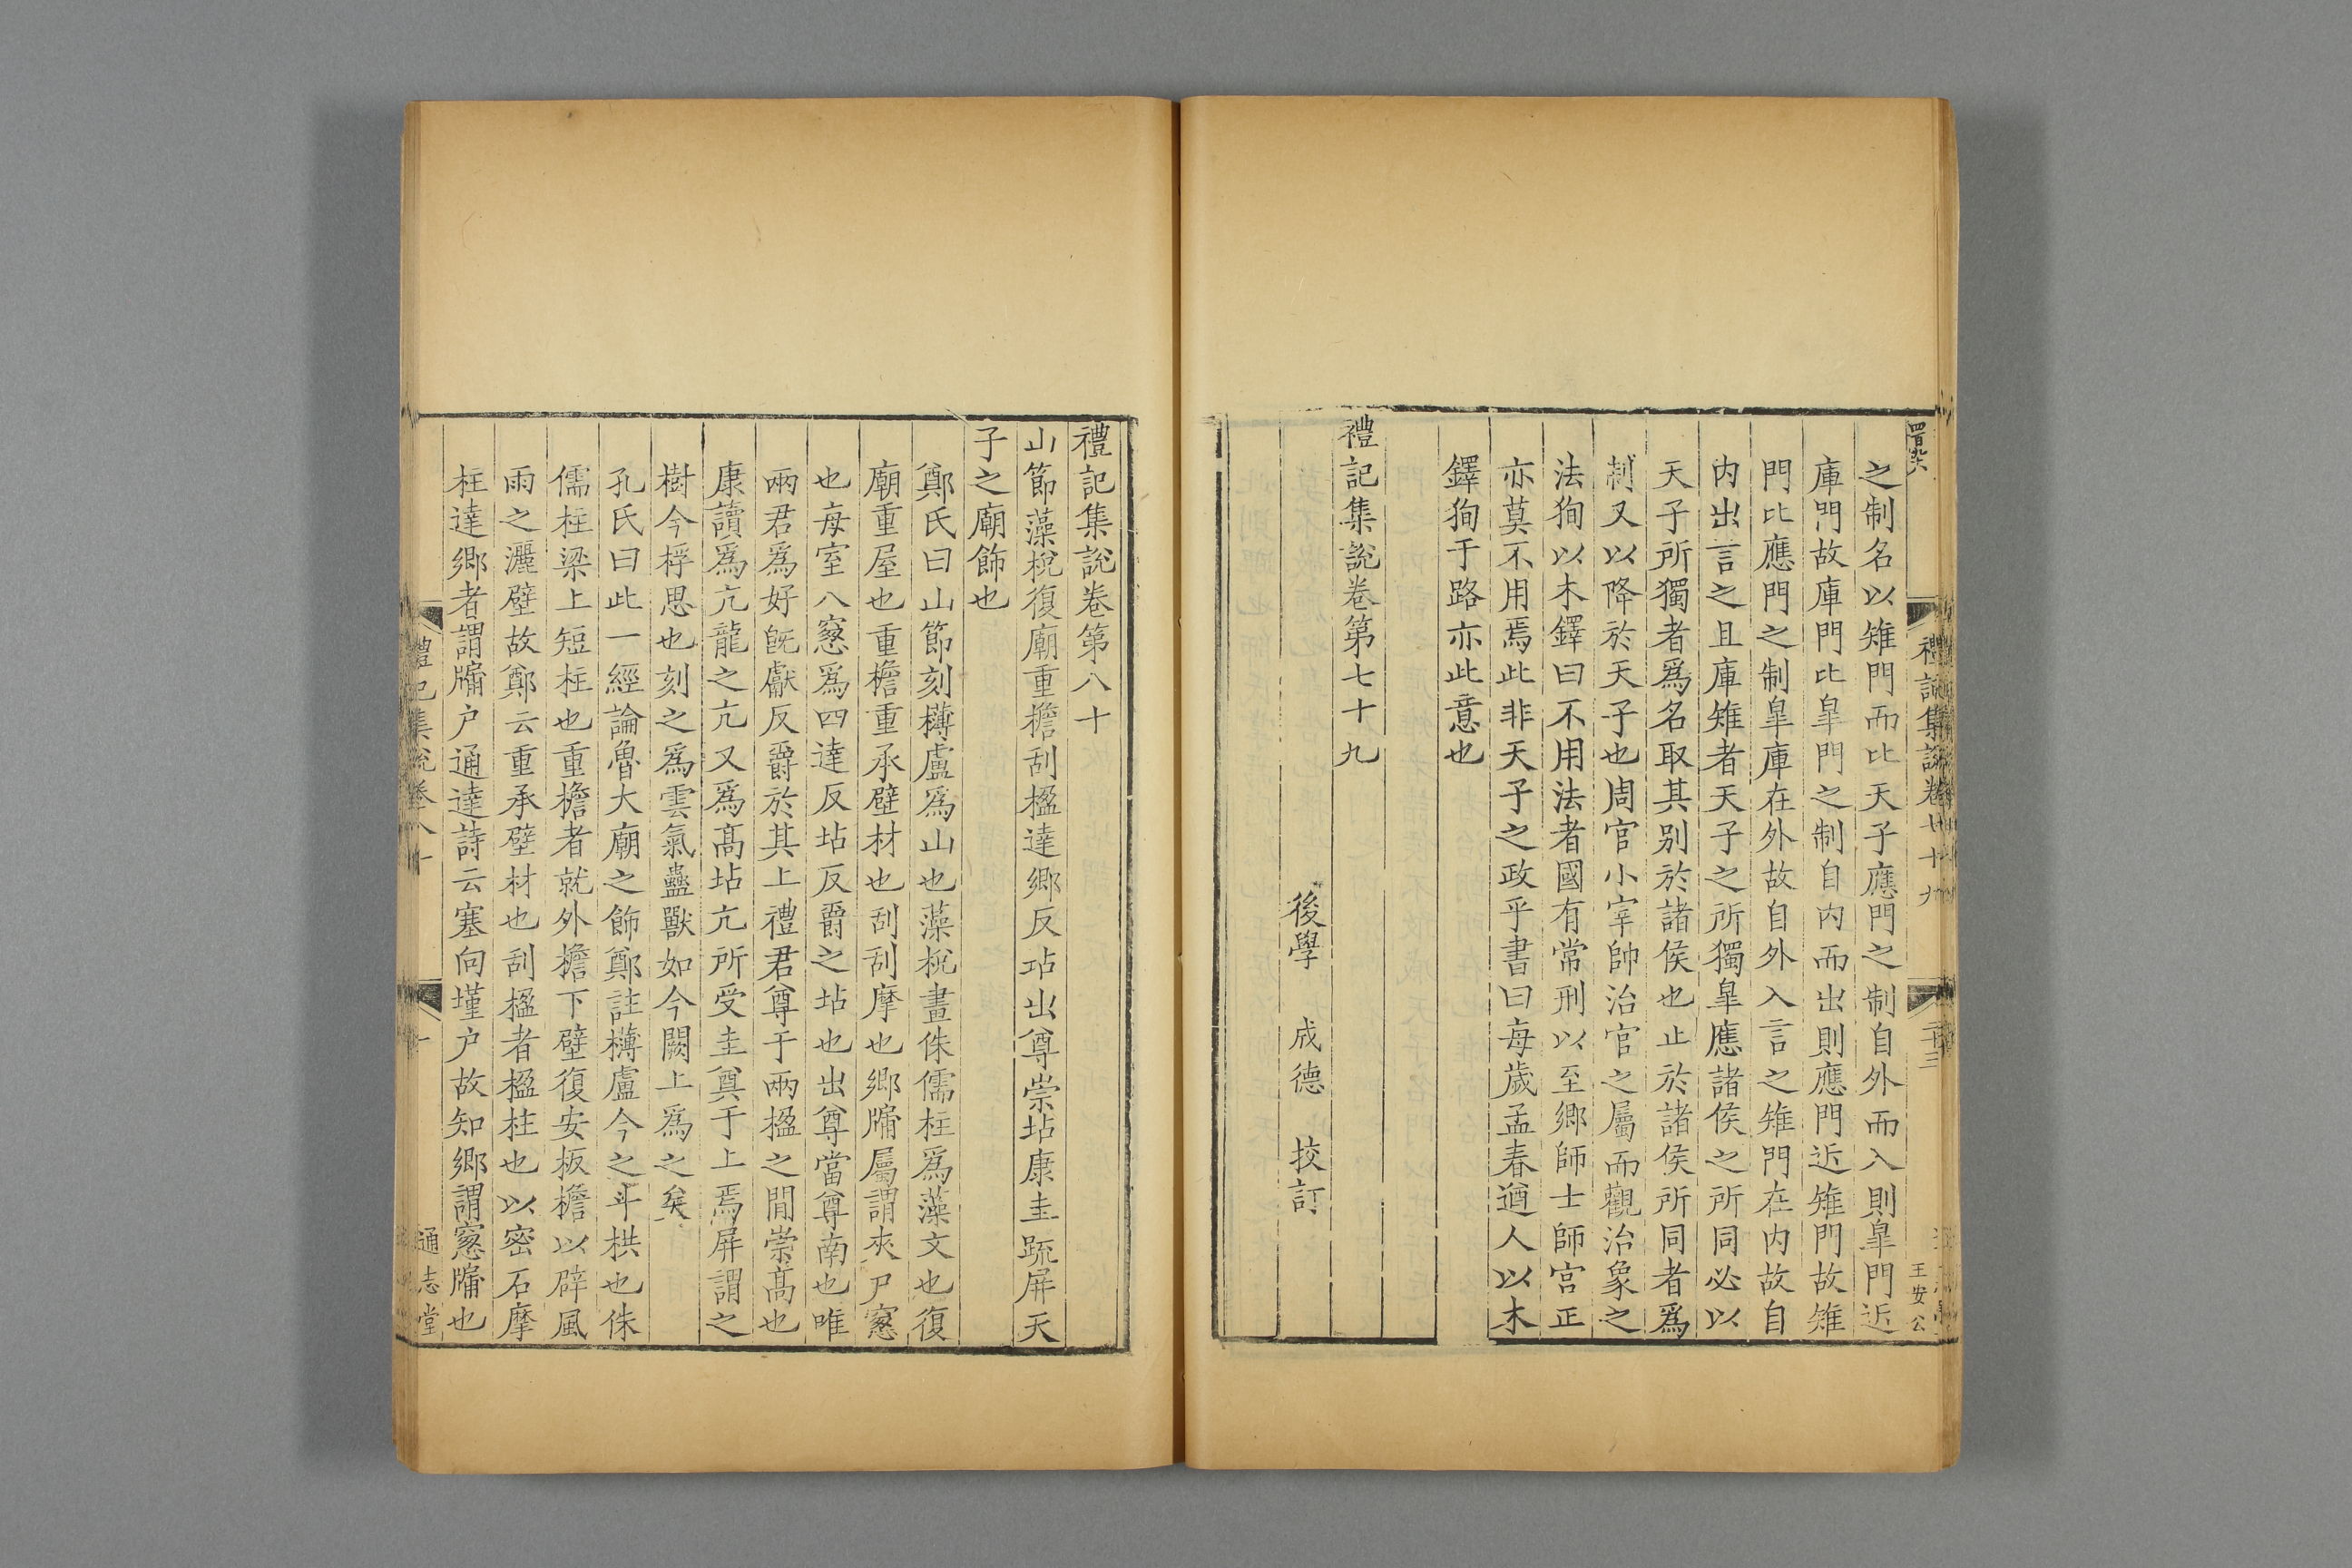 禮記集說卷七十九
二十三
王安公
之制名以雉門而比天子應門之制自外而入則臯門近
庫門故庫門比臯門之制自内而出則應門近雉門故雉
門比應門之制臯庫在外故自外入言之雉門在内故自
内出言之且庫雉者天子之所獨臯應諸侯之所同必以
天子所獨者爲名取其别於諸侯也止於諸侯所同者爲
制又以降於天子也周官小宰帥治官之屬而觀治象之
法狥以木鐸曰不用法者國有常刑以至鄉師士師宫正
亦莫不用焉此非天子之政乎書曰每歲孟春遒人以木
鐸狥于路亦此意也
禮記集說卷第七十九
後學 成德 挍訂
禮記集說卷第八十
山節藻梲復廟重檐刮楹達鄉反坫出尊崇坫康圭疏屏天
子之廟飾也
鄭氏曰山節刻欂盧爲山也藻梲畫侏儒柱爲藻文也復
廟重屋也重檐重承壁材也刮刮摩也鄉牖屬謂夾户窻
也每室八窻爲四達反坫反爵之坫也出尊當尊南也唯
兩君爲好旣獻反爵於其上禮君尊于兩楹之閒崇髙也
康讀爲亢龍之亢又爲髙坫亢所受圭奠于上焉屏謂之
樹今桴思也刻之爲雲氣蟲獸如今闕上爲之矣
孔氏曰此一經論魯大廟之飾鄭註欂盧今之斗栱也侏
儒柱梁上短柱也重檐者就外檐下壁復安板檐以辟風
雨之灑壁故鄭云重承壁材也刮楹者楹柱也以密石摩
柱達鄉者謂牖户通達詩云塞向墐户故知鄉謂窻牖也
禮記集說卷八十
一
通志堂